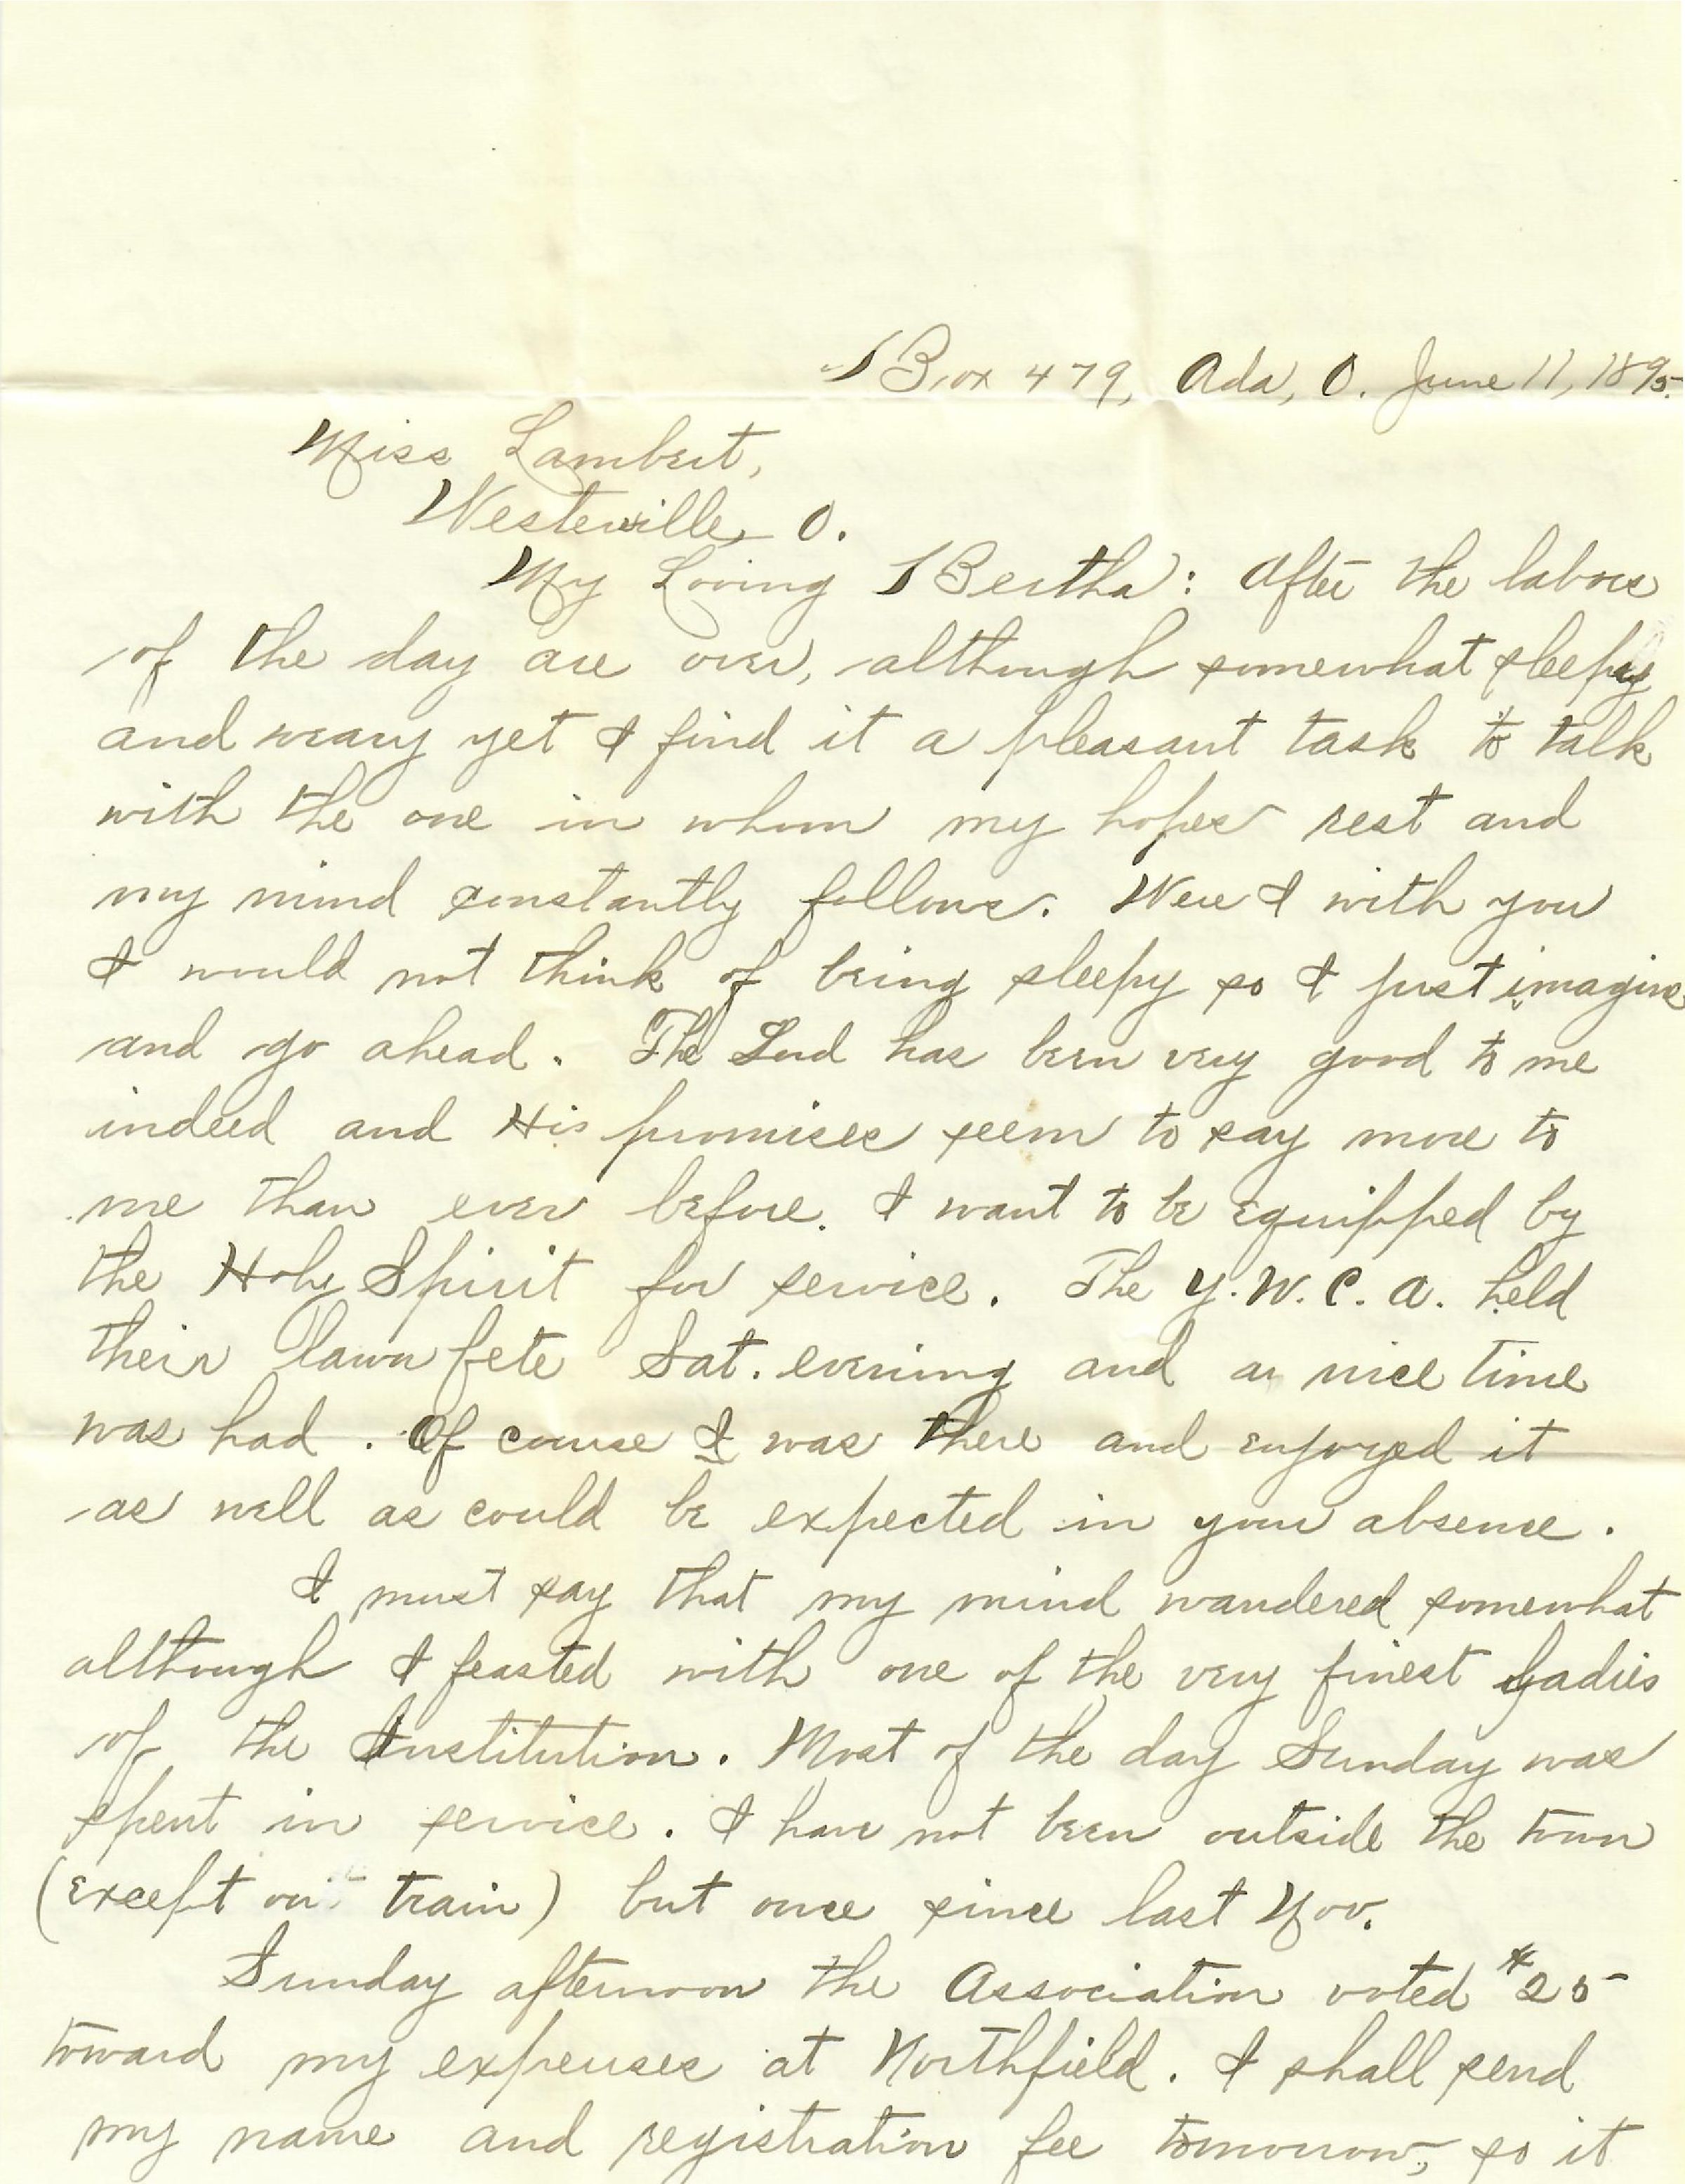 Box 479, Ada, O. June 11, 1895.
Miss Lambert,
Westerville, O.
My Loving Bertha: After the labors
of the day are over, although somewhat sleepy
and weary yet I find it a pleasant task to talk
with the one in whom my hopes rest and
my mind constantly follows. Were I with you
I would not think of being sleepy so I just imagine
and go ahead. The Lord has been very good to me
indeed and His promises seem to say more to
me than ever before. I want to be equipped by
the Holy Spirit for service. The Y.W.C.A. held
their lawn fete Sat. evening and a nice time
was had. Of course I was there and enjoyed it
as well as could be expected in your absence.
I must say that my mind wandered somewhat
although I feasted with one of the very finest ladies
of the Institution. Most of the day Sunday was
spent in service. I have not been outside the town
(except on train) but once since last Nov.
Sunday afternoon the Association voted $25
toward my expenses at Northfield. I shall send
my name and registration fee tomorrow, so it